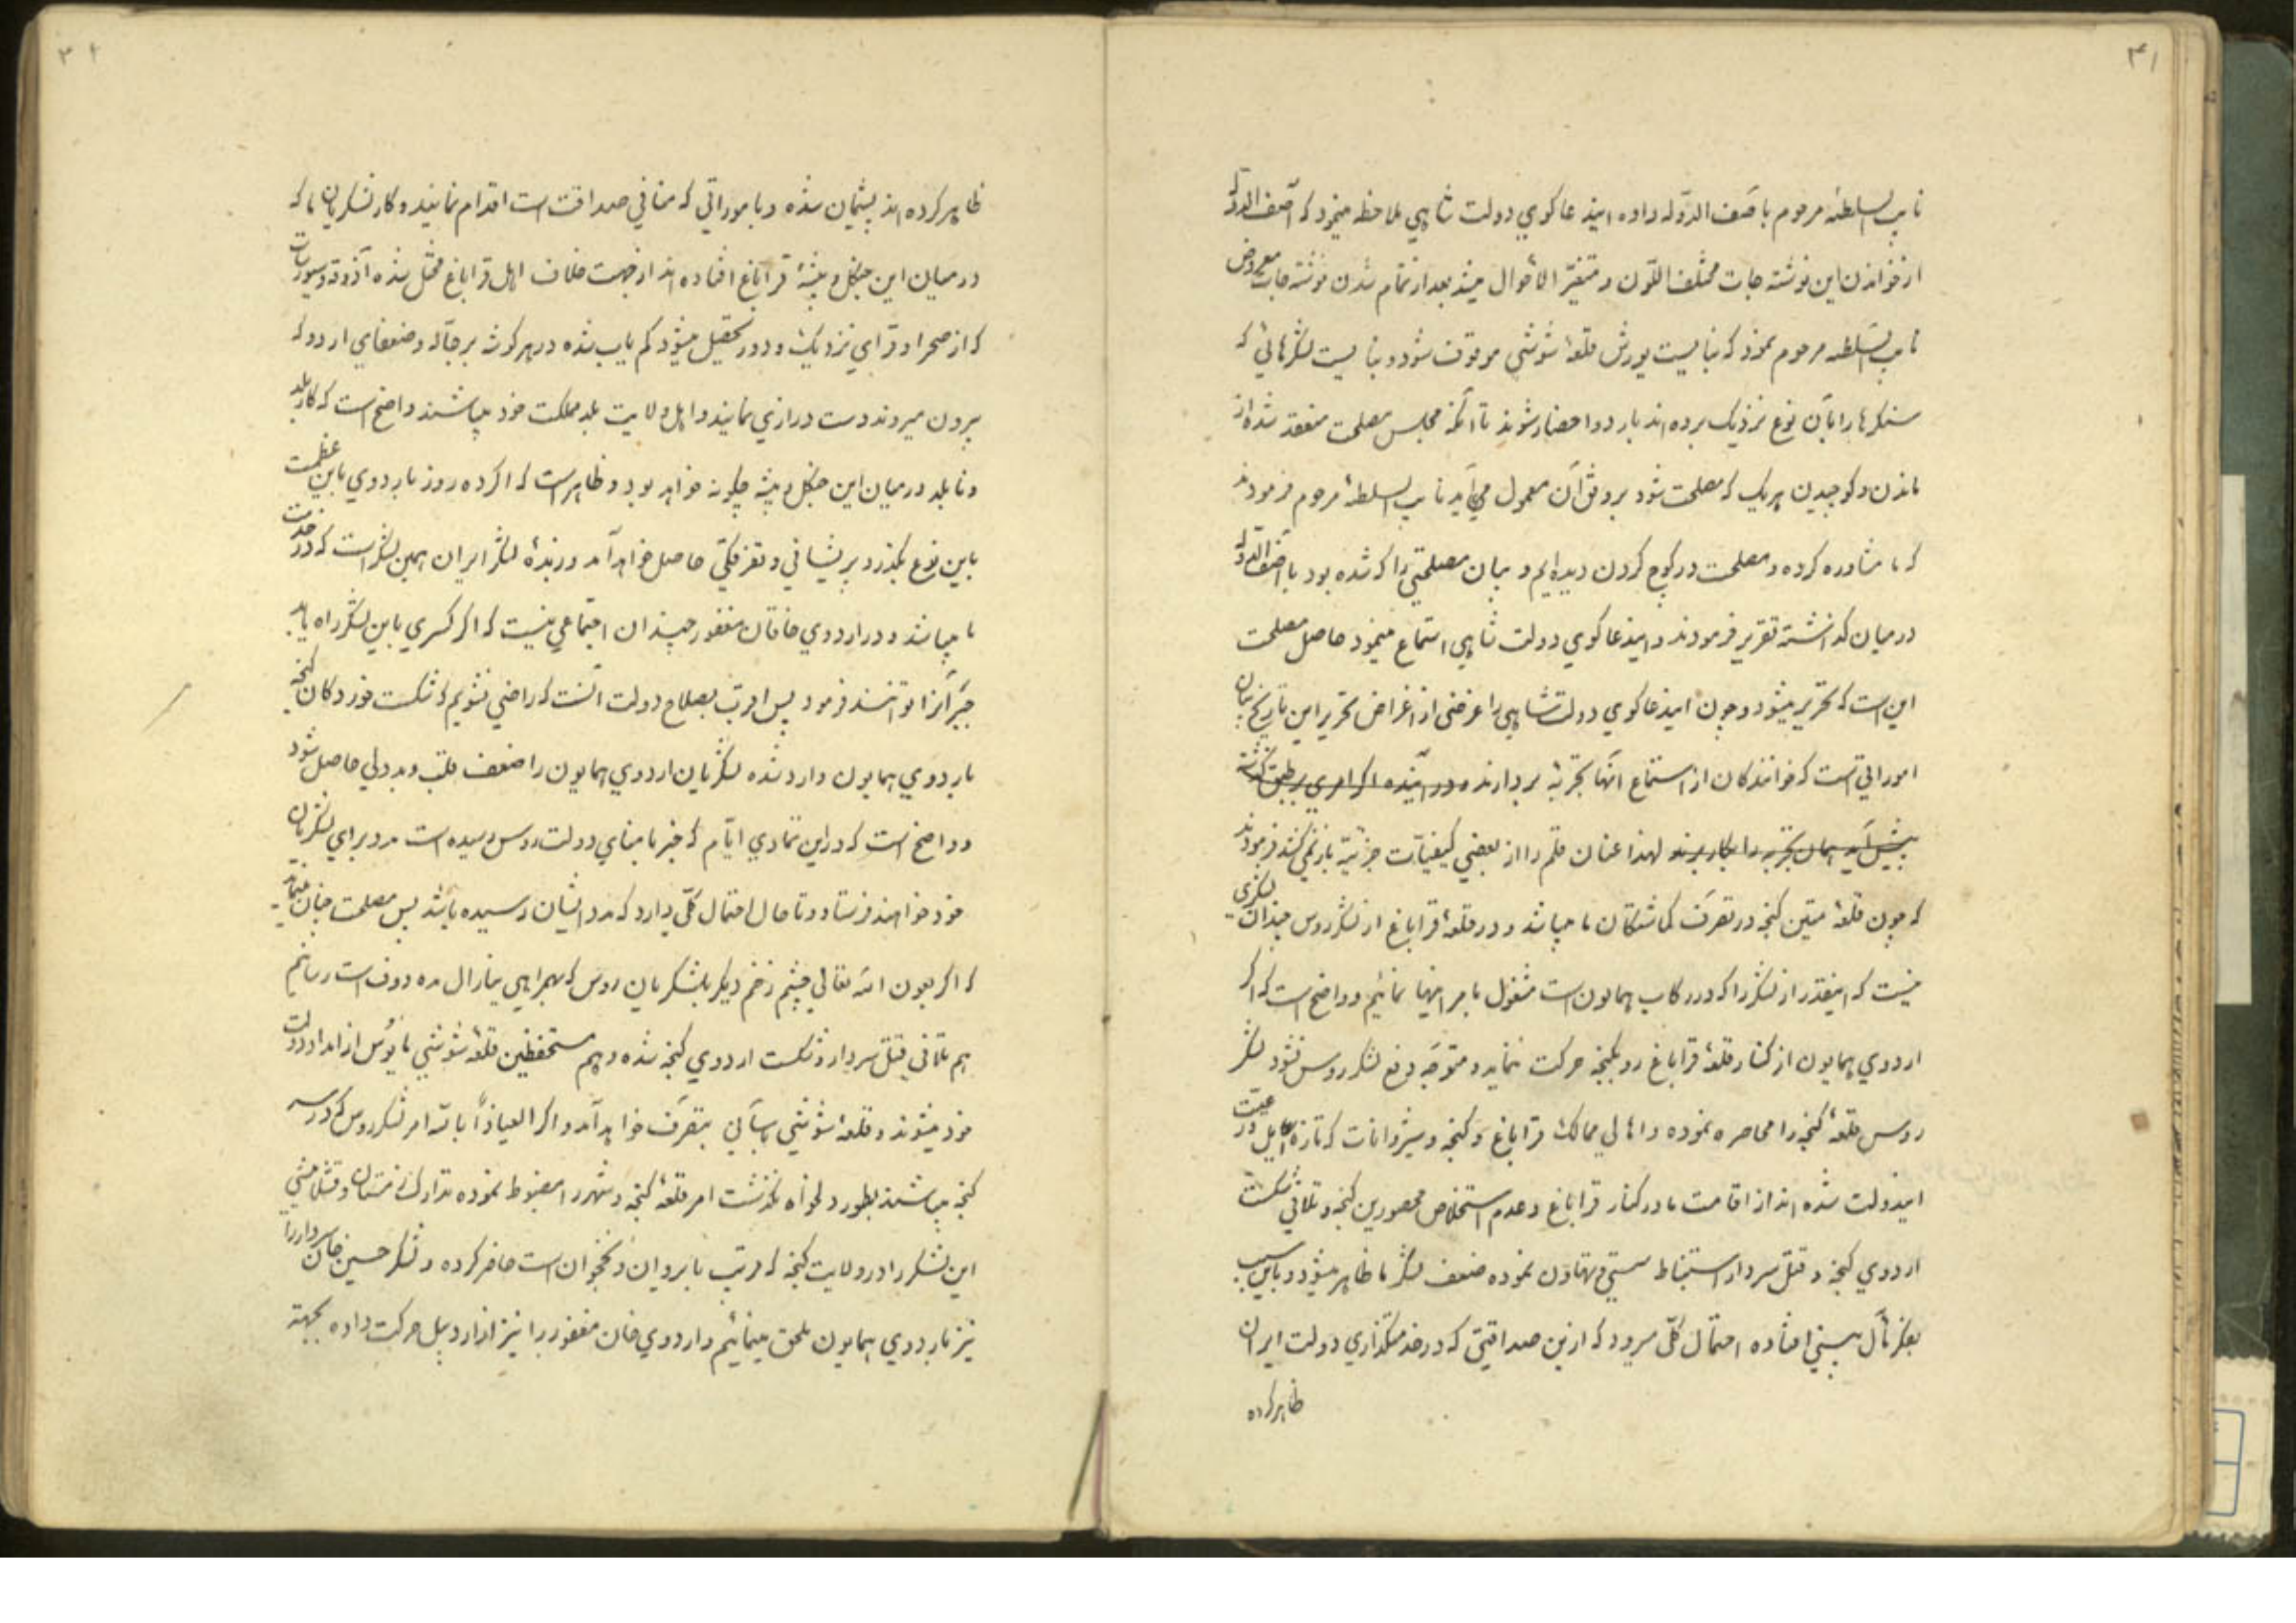 ۳۱
نایب السلطنه مرحوم باصف الدوله داده اینداعاکوی دولت شاهی ملاحظه مینمود که آصف الدوله
از خواندن این نوشته جات مختلف اللون و متغیر الاحوال میشد بعد از تمام شدن نوشته جات معروض
نایب السلطنه مرحوم نمود که نبایست یورش قلعهٔ شوشی موقوف شود و نبایست لشکرهائی که
سنکرها را باین نوع نزدیک برده اند باردو احضار شوند تا آنکه مجلس مصلحت منعقد شده از
ماندن و کوچیدن هریک که مصلحت شود بروفق آن معمول می آید نایب السلطنهٔ مرحوم فرمودند
که ما مشاوره کرده و مصلحت در کوچ کردن دیده ایم و بیان مصلحتی را که شده بود با آصف الدوله
در میان کذاشته تقریر فرمودند و اینداعاکوی دولت شاهی استماع مینمود حاصل مصلحت
این است که تحریر میشود و چون اینداعاکوی دولت شاهی را غرضی از اغراض تحریر این تاریخ بیان
اموراتی است که خوانندکان از استماع آنها تجربه بردارند و در آینده اکر امری بر طبق کذشته
پیش آید همان تجربه را بکار برند لهذا عنان قلم را از بعضی کیفیات جزئیه باز نمیکشد فرمودند
که چون قلعهٔ متین کنجه در تصرف کماشتکان ما میباشد و در قلعهٔ قراباغ از لشکر روس چندان لشکری
نیست که اینقدر از لشکر را که در رکاب همایون است مشغول بامر اینها نمائیم و واضح است که اکر
اردوی همایون از کنار قلعهٔ قراباغ رو بکنجه حرکت ننماید و متوجه دفع لشکر روس نشود لشکر
روس قلعهٔ کنجه را محاصره نموده و اهالی ممالک قراباغ و کنجه و شیروانات که تازه داخل در رعیت
ایندولت شده اند از اقامت ما در کنار قراباغ و عدم استخلاص محصورین کنجه و تلافی شکست
اردوی کنجه و قتل سردار استنباط سستی و تهاون نموده ضعف لشکر ما ظاهر میشود و باین سبب
بفکر مآل بینی افتاده احتمال کلی میرود که از این صداقتی که در خدمتکذاری دولت ایران
ظاهر کرده
۳۲
ظاهر کرده اند پشیمان شده و باموراتی که منافی صداقت است اقدام نمایند و کار لشکریان ما که
در میان این جنکل و بیشهٔ قراباغ افتاده اند از جهت خلاف اهل قراباغ مختل شده آذوقه و سیورسات
که از صحرا و قرای نزدیک و دور تحصیل میشود کم یاب شده در هر کوشه برجاله و ضعفای اردو که
بیرون میروند دست درازی نمایند و اهل ولایت بلد مملکت خود میباشند واضح است که کار بلد
و نابلد در میان این جنکل و بیشه چکونه خواهد بود و ظاهر است که اکر ده روز باردوی باین عظمت
باین نوع بکذرد پریشانی و تفرقکی حاصل خواهد آمد و زبدهٔ لشکر ایران همین لشکر است که در خدمت
ما میباشد و در اردوی خاقان مغفور چندان اجتماعی نیست که اکر کسری باین لشکر راه یابد
جبر آنرا توانند فرمود پس اقرب بصلاح دولت آنست که راضی نشویم که شکست خوردکان کنجه
باردوی همایون وارد شده لشکریان اردوی همایون را ضعف قلب و بددلی حاصل شود
و واضح است که در این تمادی ایام که خبر بامنای دولت روس رسیده است مدد برای لشکریان
خود خواهند فرستاد و تا حال احتمال کلی دارد که مدد ایشان رسیده باشد پس مصلحت چنان مینماید
که اکر بعون الله تعالی چشم زخم دیکر بلشکریان روس که بهمراهی ینارال مددوف است رسانیم
هم تلافی قتل سردار و شکست اردوی کنجه شده و هم مستحفظین قلعهٔ شوشی مأیوس از امداد دولت
خود میشوند و قلعهٔ شوشی بآسانی بتصرف خواهد آمد و اکر العیاذاً بالله امر لشکر روس که در سر
کنجه میباشند بطور دلخواه نکذشت امر قلعهٔ کنجه و شهر را مضبوط نموده تدارک زمستان و قشلامیشی
این لشکر را در ولایت کنجه که قریب بایروان و نخجوان است حاضر کرده و لشکر حسین خان سردار را
نیز باردوی همایون ملحق مینمائیم و اردوی خان مغفور را نیز از اردبیل حرکت داده بجهة